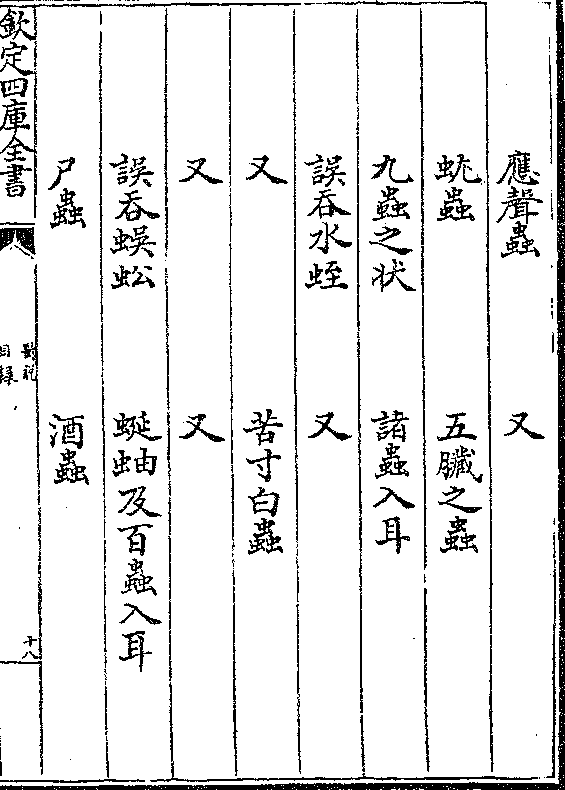 應聲蟲　又
蚘蟲　五臟之蟲
九蟲之狀　諸蟲入耳
誤吞水蛭　又
又　苦寸白蟲
又　又
誤吞蜈蚣　蜒蚰及百蟲入耳
尸蟲　酒蟲
欽定四庫全書
醫說
目錄
十八